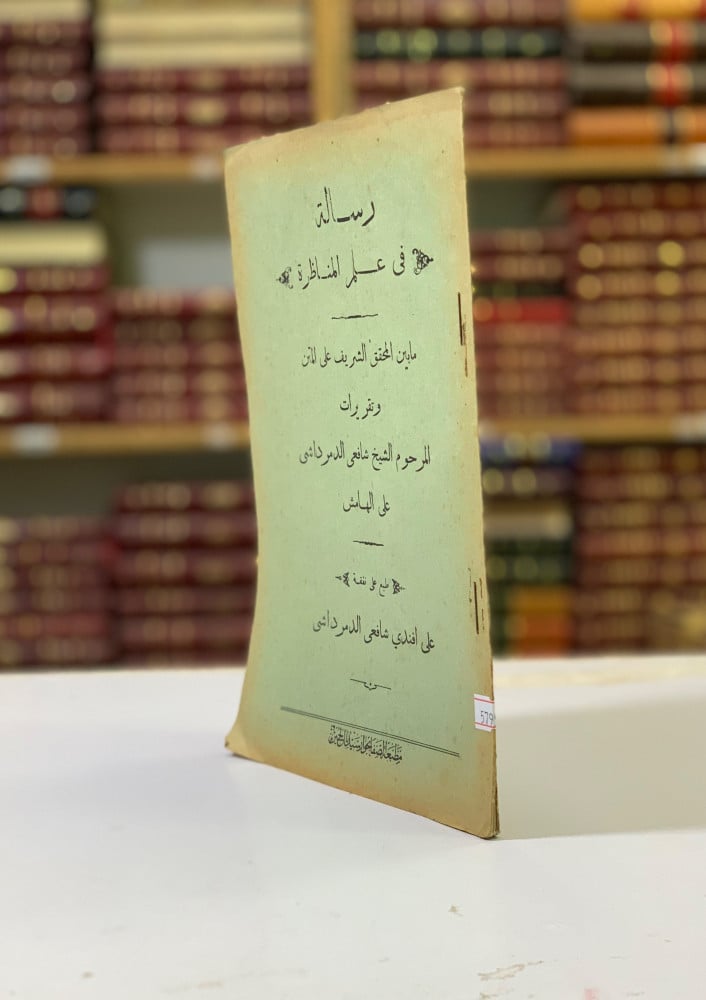 رسالة
في علم المناظرة
مابين المحقق الشريف على المتن
وتقريرات
المرحوم الشيخ شافعى الدمرداشى
على الهامش
طبع على نفقة
على افندي شافعى الدمرداشى
مطبعة الصفا بجوار سيدنا الحسين
579